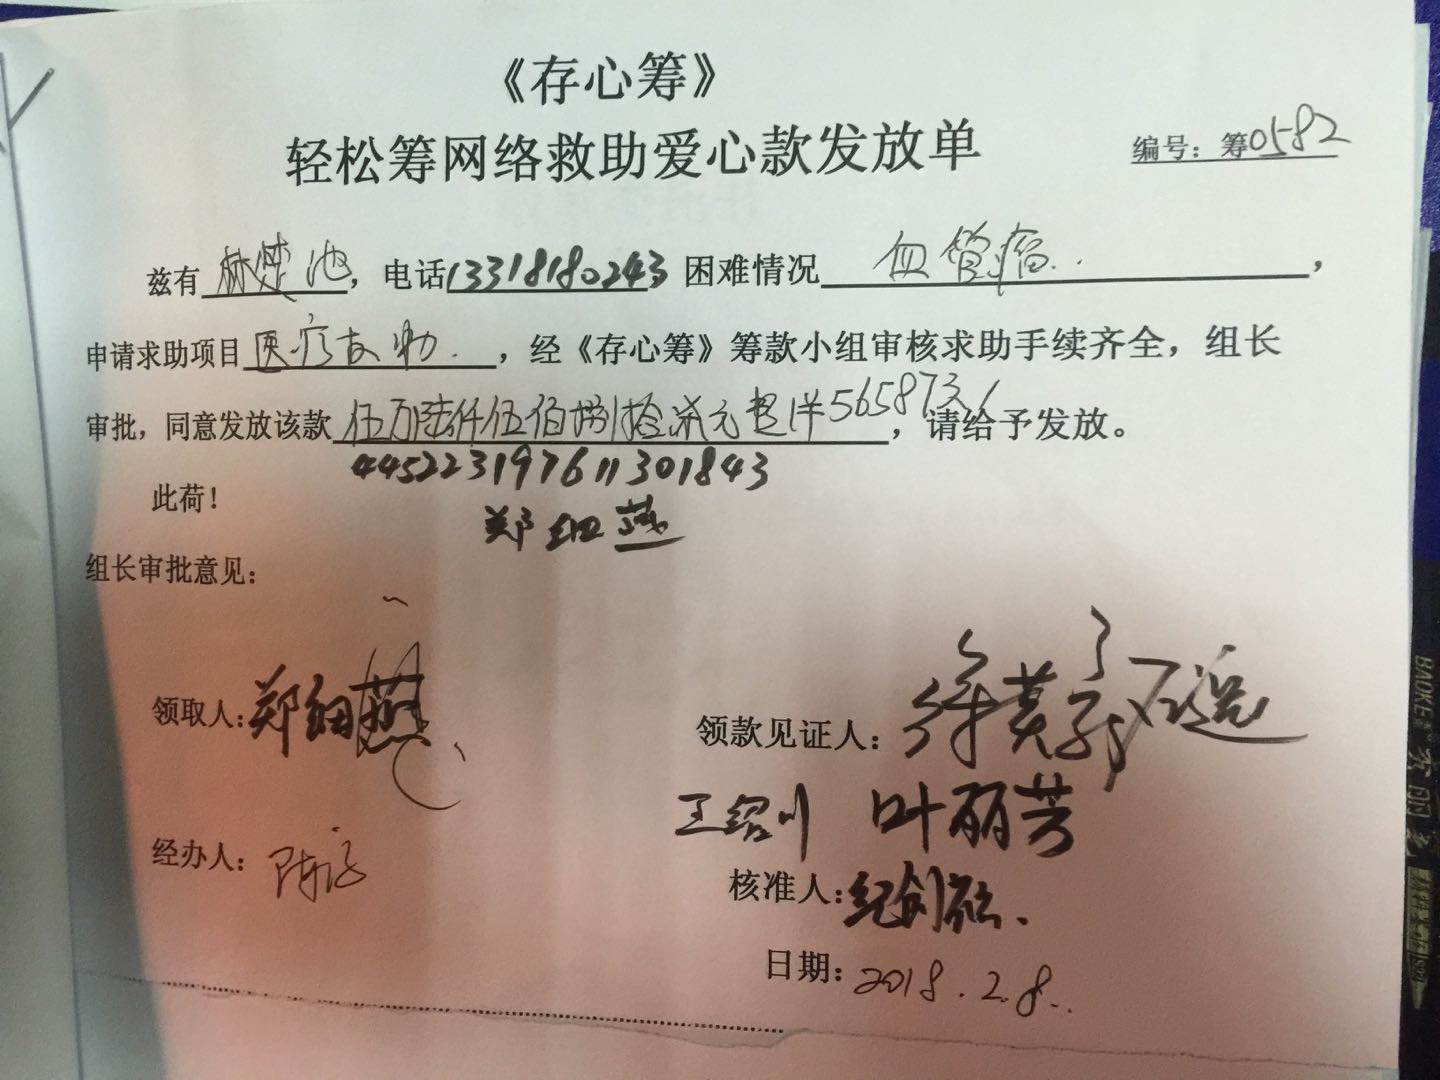 《存心筹》
轻松筹网络救助爱心款发放单
编号：筹0582
兹有林楚池，电话13318180243 困难情况 血管瘤.，
申请求助项目医疗救助.，经《存心筹》筹款小组审核求助手续齐全，组长
审批，同意发放该款伍万陆仟伍佰捌拾柒元叁 565873/，请给予发放。
445223197611301843
此荷！
郑细燕
组长审批意见：
领取人：郑细燕
领款见证人：
王绍川 叶丽芳
经办人：
核准人：纪剑
日期：2018.2.8.
BAOKE